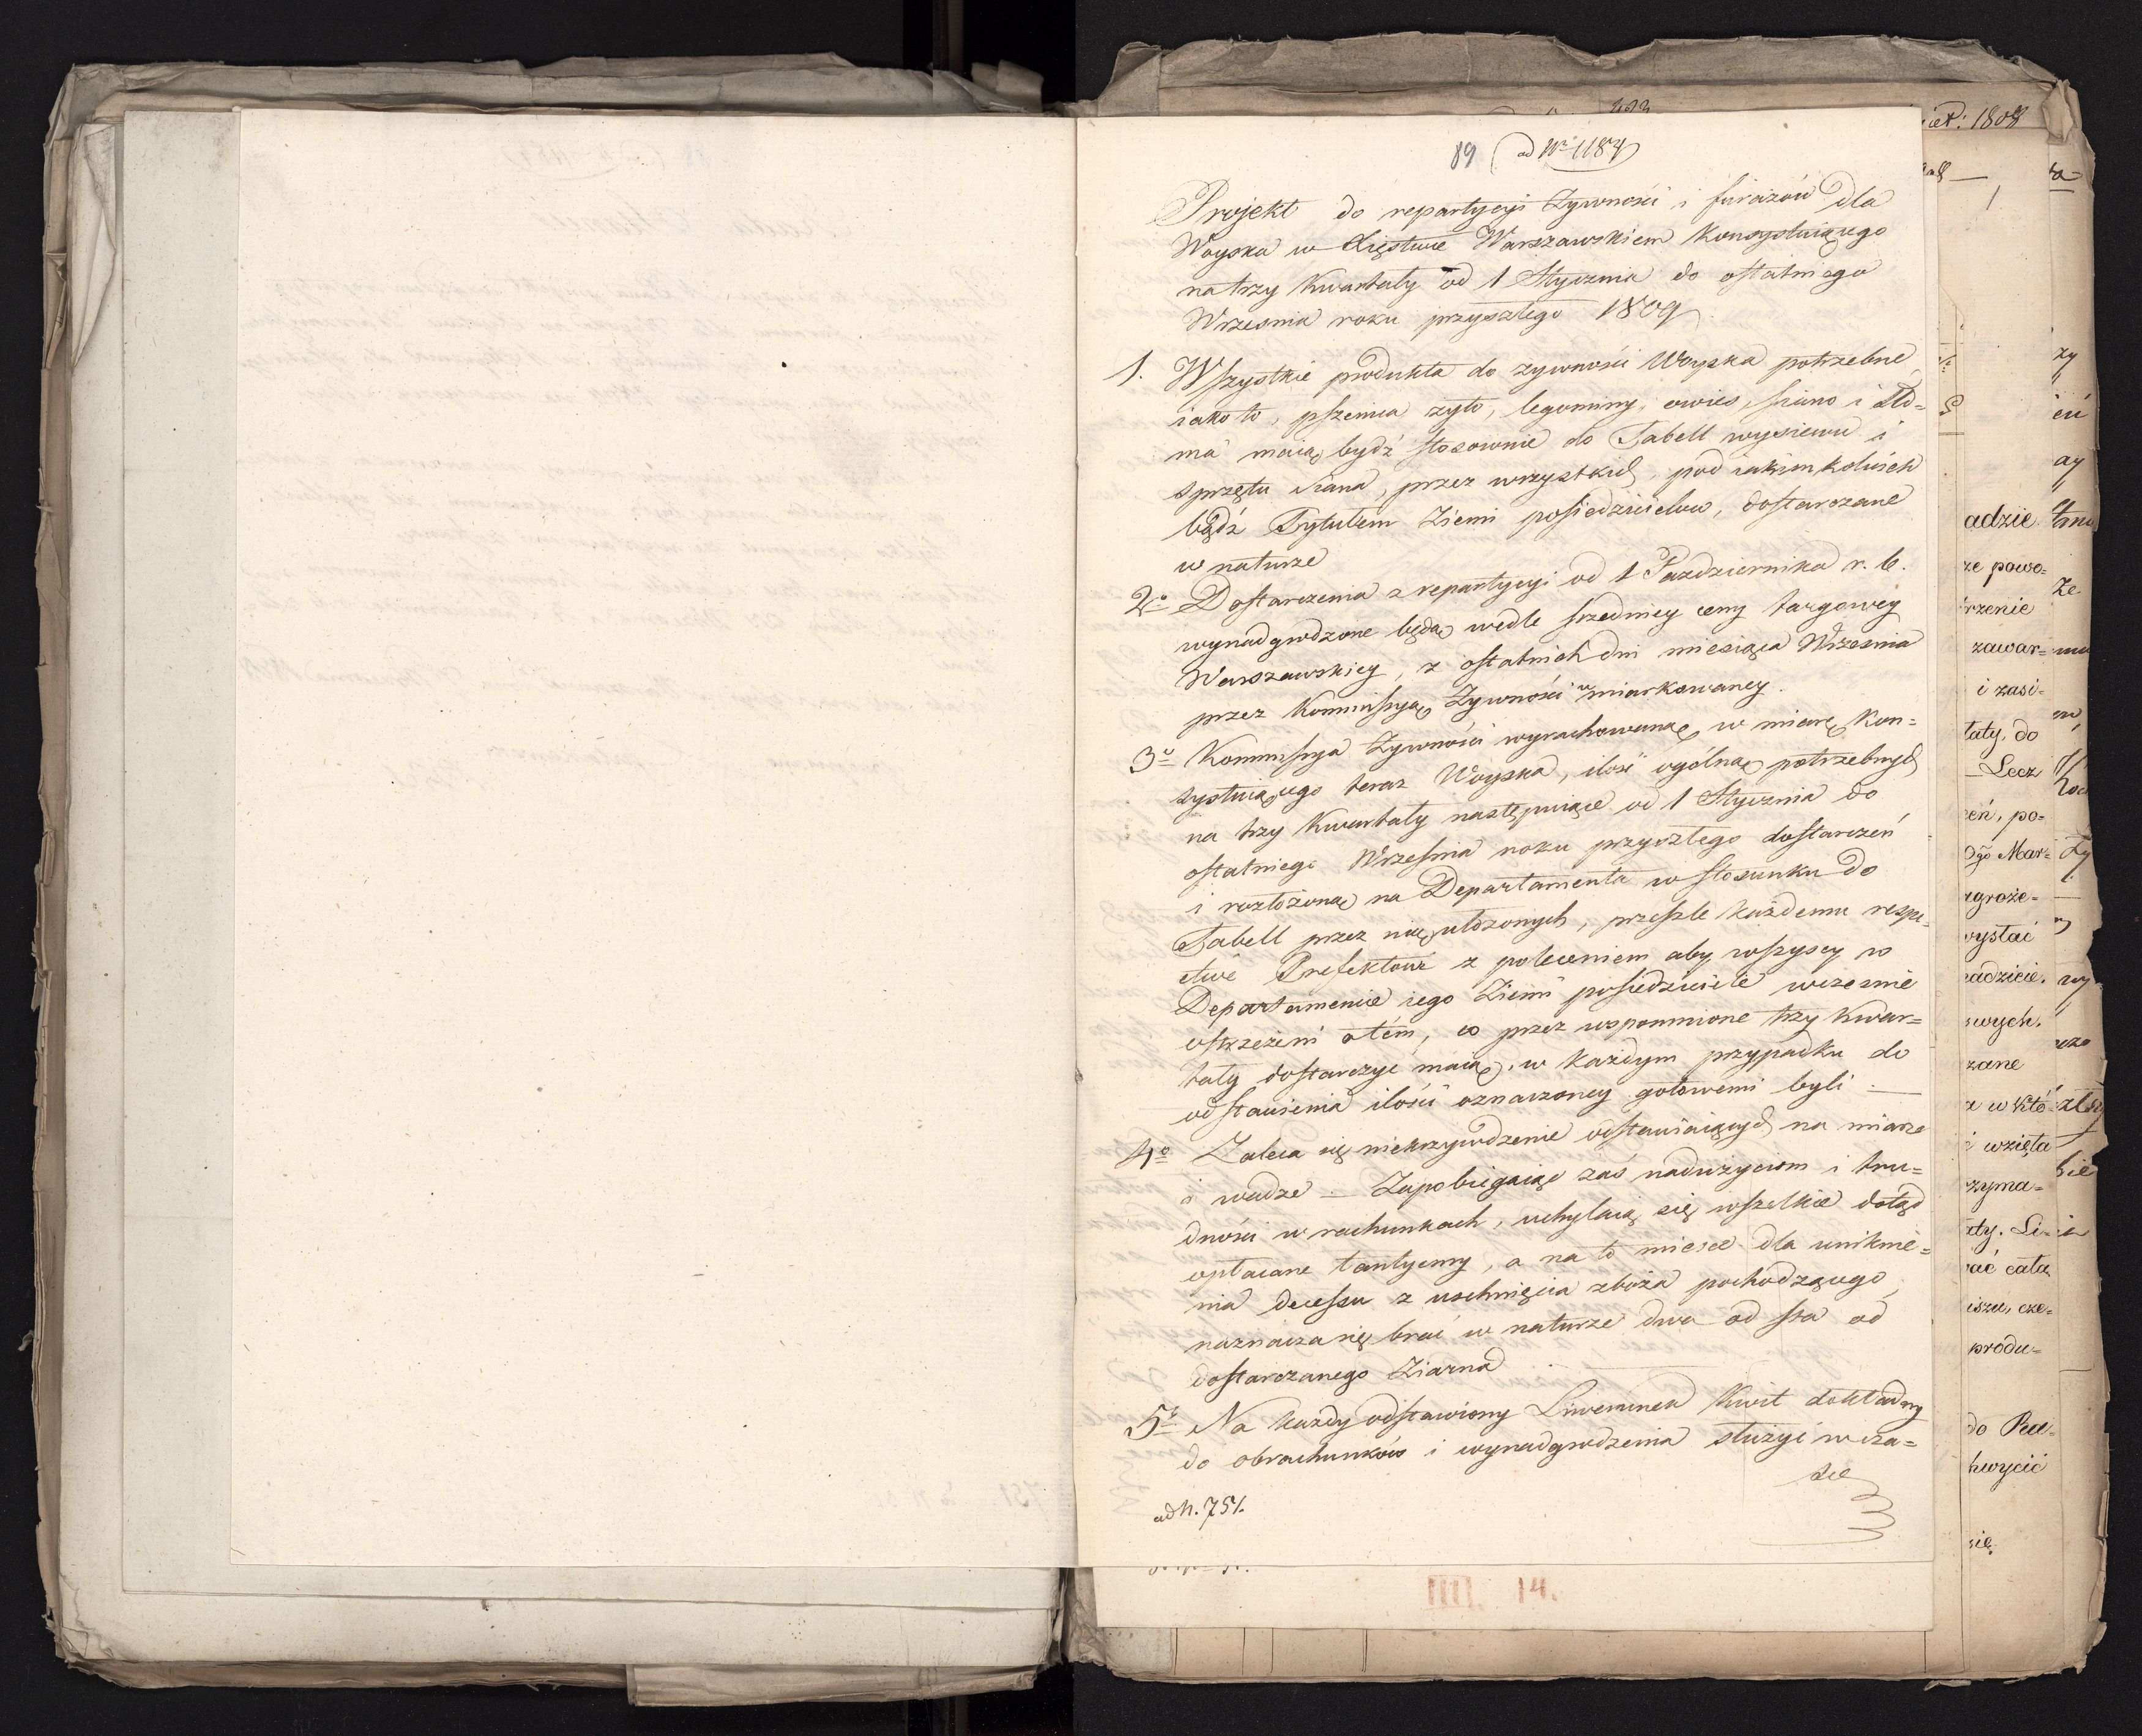 89 ad Nr 1187
Projekt do repartycyi Zywności i furażów dla
Woyska w Xięstwie Warszawskiem Konsystuiącego
na trzy Kwartały od 1 Stycznia do ostatniego
Wrzesnia roku przyszłego 1809
1. Wszystkie produkta do zywności Woyska potrzebne,
iako to, pszenica zyto, legominy, owies, siano i sło=
ma maią bydź stosownie do Tabell wysiewu i
sprzętu siana, przez wszystkich, pod iakimkolwiek
bądź Tytułem Ziemi posiedzicielow, dostarczane
w naturze
2o Dostarczenia z repartycyi od 1 Pazdziernika r. b.
wynadgrodzone będą wedle srzedniey ceny targowey
Warszawskiey, z ostatnich dni miesiąca Wrzesnia
przez Kommissyą Zywności umiarkowaney.
3o Kommissya Zywności wyrachowaną w miarę Kon=
systuiącego teraz Woyska, ilość ogólną potrzebnych
na trzy Kwartały następuiące od 1 Stycznia do
ostatniego Wrzesnia roku przyszłego dostarczeń
i rozłożoną na Departamenta w stosunku do
Tabell przez nię ułożonych, przeszle każdemu respe=
ctive Prefektowi z poleceniem aby wszyscy w
Departamencie iego Ziemi posiedziciele wczesnie
ostrzeżeni o tém, co przez wspomnione trzy Kwar=
tały dostarczyć maią, w każdym przypadku do
odstawienia ilości oznaczoney gotowemi byli.
4o Zaleca się niekrzywdzenie odstawiaiących na miarze
i wadze — Zapobiegaiąc zaś nadużyciom i tru=
dności w rachunkach, uchylaią się wszelkie dotąd
opłacane tantyemy, a na to miesce dla uniknie=
nia decessu z uschnięcia zboża pochodzącego,
naznacza się brać w naturze dwa od sta od
dostarczanego Ziarna
5o Na każdy odstawiony Liwerunek Kwit dokładny
do obrachunków i wynadgrodzenia służyć w cza=
sie
ad N. 751.
III. 14.
iet: 1808
adzie
ze powo=
rzenie
zawar=
i zasi=
łaty, do
— Lecz
eń, po=
Mar=
zgroże=
wysłać
adzicie.
swych.
zane
w któ=
wzięta
rzyma=
ać całą
produ=
hwycić
się